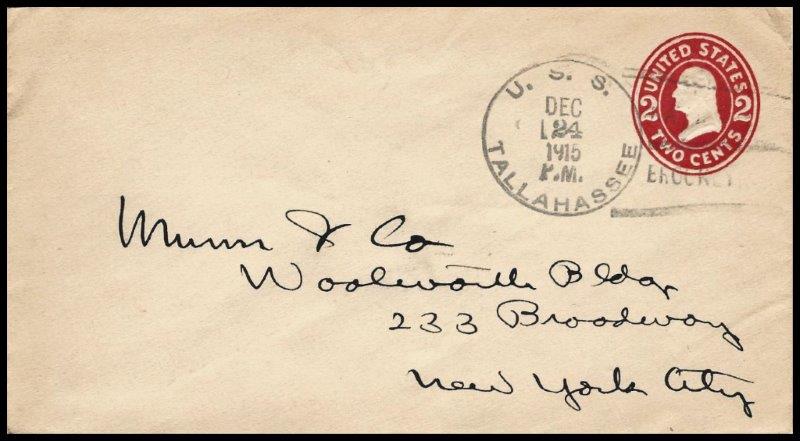 U. S. S.
DEC
24
1915
P.M.
TALLAHASSEE
UNITED STATES
2 2
TWO CENTS
Munn & Co
Woolworth Bldg,
233 Broadway
New York City